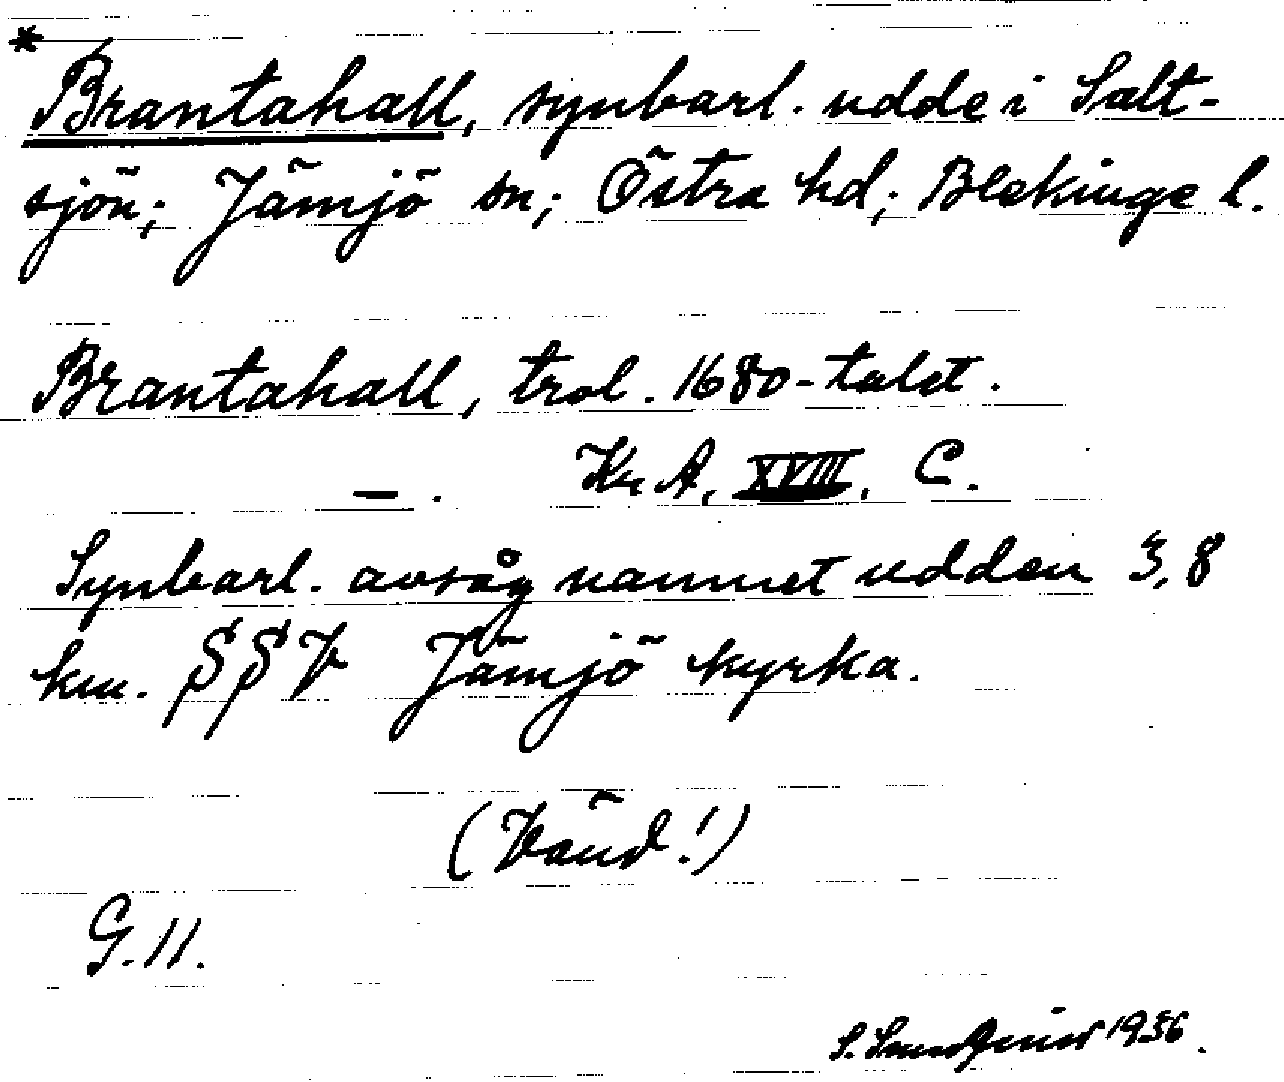 *
Brantahall, synbarl. udde i Salt-
sjön; Jämjö sn; Östra hd; Blekinge l.
Brantahall, trol. 1680-talet.
—. Kr. A. XVIII, C.
Synbarl. avsåg namnet udden 3,8
km. SSV Jämjö kyrka.
(Vänd!)
G. 11.
S. 1936.